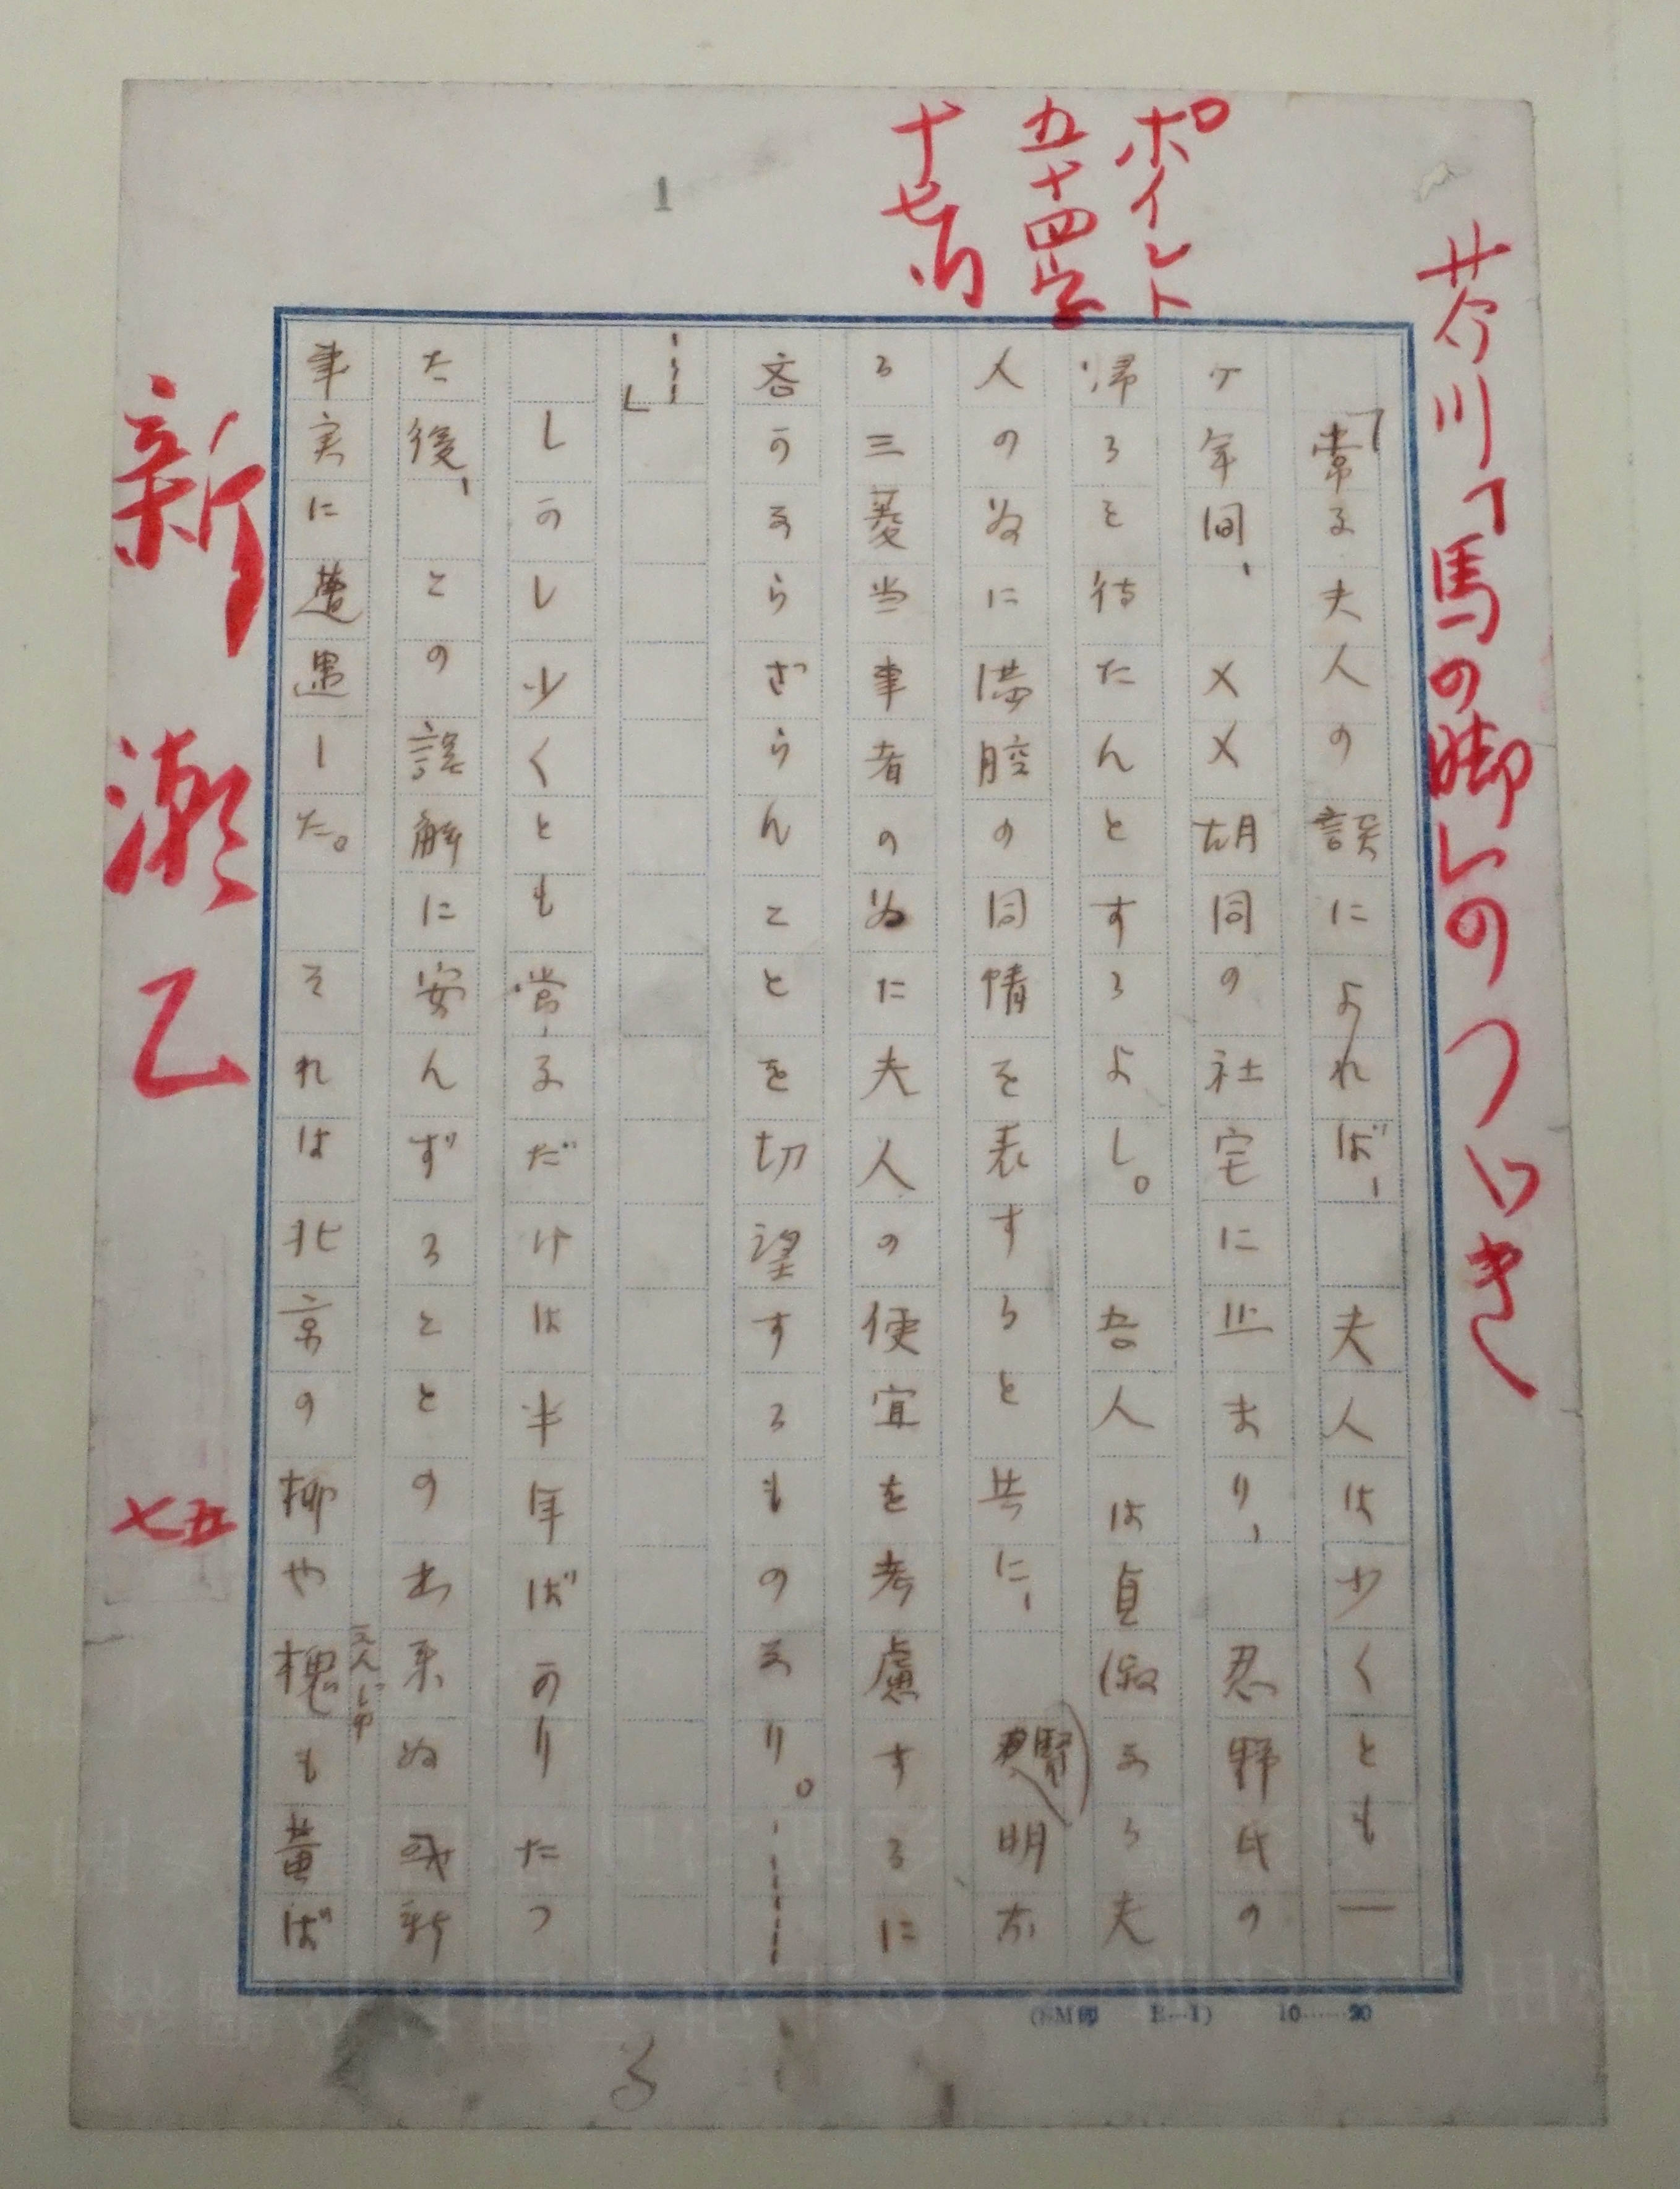 芥川「馬の脚」のつゞき
ポイント
五十四字
十七行
1
「常子夫人の談によれば、夫人は少くとも一
ケ年間、××胡同の社宅に止まり、忍野氏の
帰るを待たんとするよし。吾人は貞淑なる夫
人の為に満腔の同情を表すると共に、賢明な
る三菱当事者の為に夫人の便宜を考慮するに
吝かならざらんことを切望するものなり。……
…」
しかし少くとも常子だけは半年ばかりたつ
た後、この誤解に安んずることの出来ぬ或新
事実に遭遇した。それは北京の柳や槐も黄ば
えんじゆ
新
瀬
乙
七五
10……20